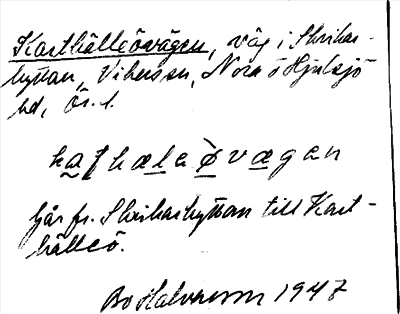 Karthälleövägen, väg i Skrikar-
hyttan, Vikers sn, Nora o Hjulsjö
bd, Ör. l.
kaʈhæleøvægan
Går fr. Skrikarhyttan till Kart-
hälleö.
Bo Halvarsson 1947